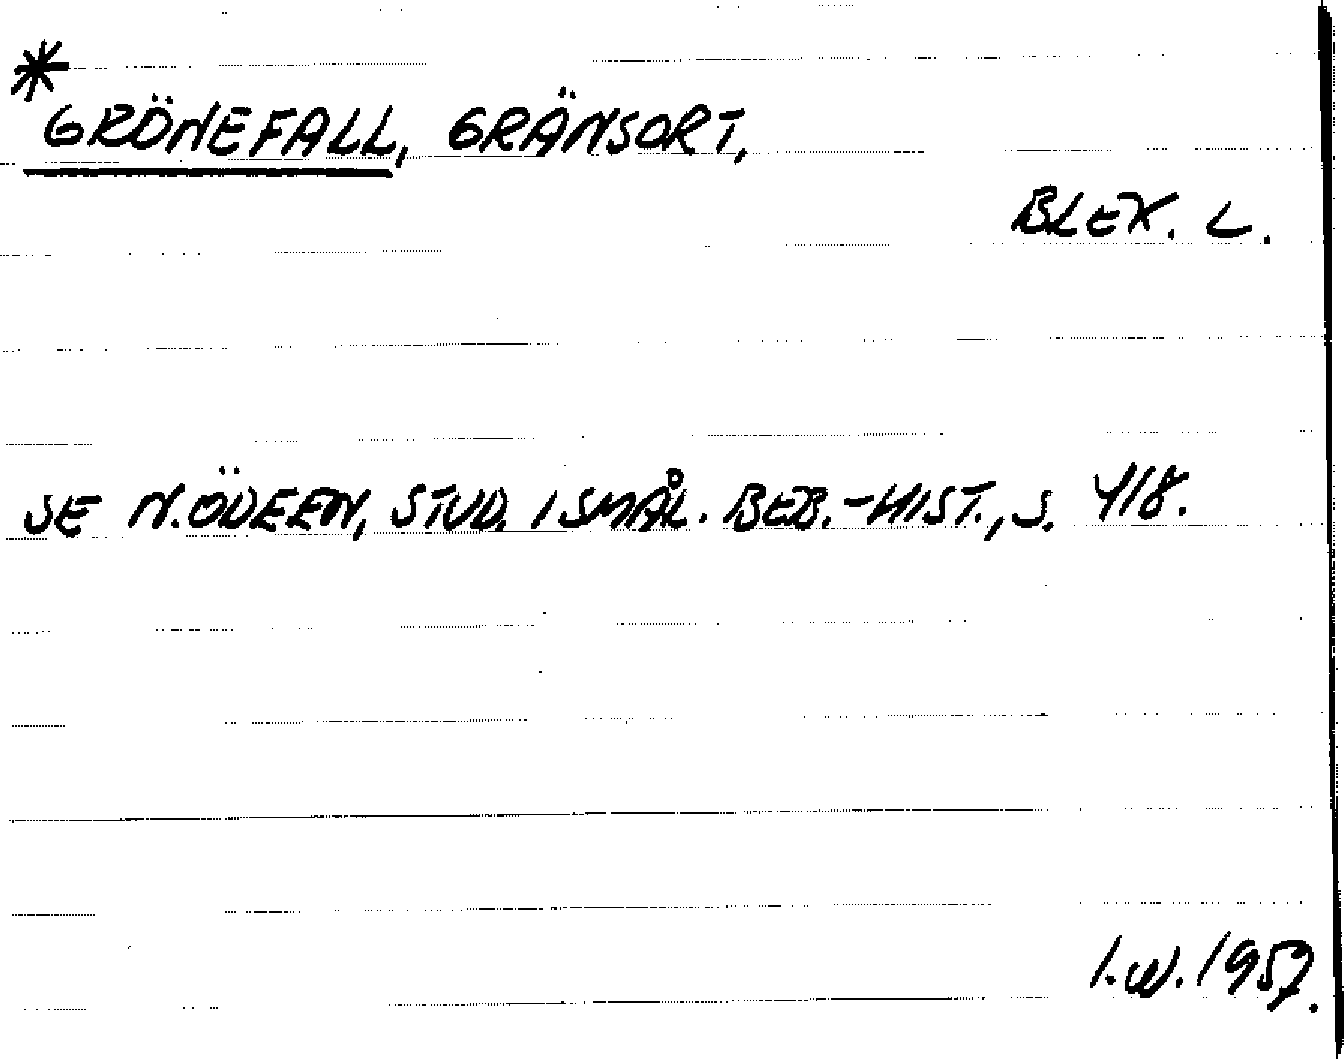 *
GRÖNEFALL, GRÄNSORT,
BLEK. L.
SE N. ÖDEEN, STUD. I SMÅL. BEB.-HIST., S. 418.
I.W. 1957.